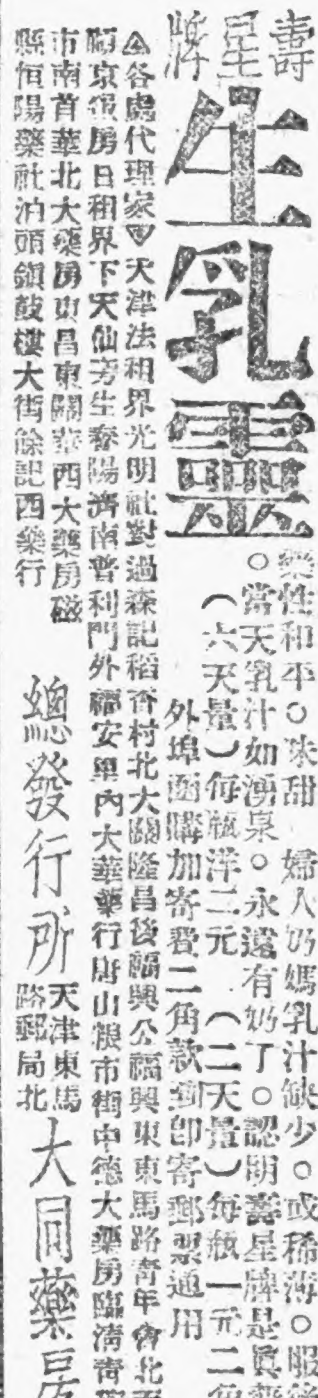 壽星牌
生乳靈
藥性和平○味甜 婦人奶媽乳汁缺少○或稀薄○服
○當天乳汁如湧泉○永遠有奶了○認明壽星牌是眞
(六天量)每瓶洋二元 (二天量)每瓶一元二角
外埠函購加寄費二角款到卽寄郵票通用
△各處代理家▽天津法租界光明社對過森記稻香村北大關隆昌後福興公福興東東馬路靑年會北
京貨房日租界下天仙旁生春陽濟南普利門外福安里內大華藥行唐山糧市街中德大藥房臨淸
市南首華北大藥房東昌東關華西大藥房磁
縣恒陽藥社泊頭鎭鼓樓大街餘記西藥行
總發行所
天津東馬
路郵局北
大同藥房